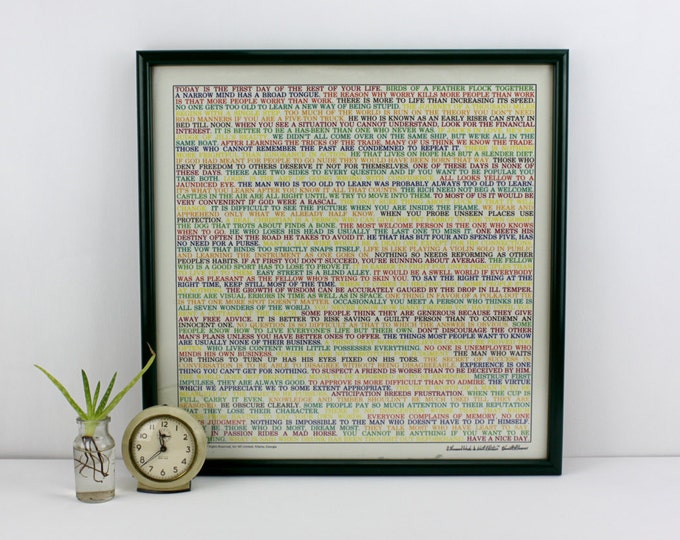 TODAY IS THE FIRST DAY OF THE REST OF YOUR LIFE. BIRDS OF A FEATHER FLOCK TOGETHER.
A NARROW MIND HAS A BROAD TONGUE. THE REASON WHY WORRY KILLS MORE PEOPLE THAN WORK
IS THAT MORE PEOPLE WORRY THAN WORK. THERE IS MORE TO LIFE THAN INCREASING ITS SPEED.
NO ONE GETS TOO OLD TO LEARN A NEW WAY OF BEING STUPID.
TOO MUCH OF THE WORLD IS RUN ON THE THEORY THAT YOU DON'T NEED
ROAD MANNERS IF YOU ARE A FIVE TON TRUCK. HE WHO IS KNOWN AS AN EARLY RISER CAN STAY IN
BED TILL NOON. WHEN YOU SEE A SITUATION YOU CANNOT UNDERSTAND, LOOK FOR THE FINANCIAL
INTEREST. IT IS BETTER TO BE A HAS-BEEN THAN ONE WHO NEVER WAS.
WE DIDN'T ALL COME OVER ON THE SAME SHIP, BUT WE'RE ALL IN THE
SAME BOAT. AFTER LEARNING THE TRICKS OF THE TRADE, MANY OF US THINK WE KNOW THE TRADE.
THOSE WHO CANNOT REMEMBER THE PAST ARE CONDEMNED TO REPEAT IT.
HE THAT LIVES ON HOPE HAS A SLENDER DIET.
IF GOD HAD MEANT FOR PEOPLE TO GO NUDE THEY WOULD HAVE BEEN BORN THAT WAY. THOSE WHO
DENY FREEDOM TO OTHERS DESERVE IT NOT FOR THEMSELVES. ONE OF THESE DAYS IS NONE OF
THESE DAYS. THERE ARE TWO SIDES TO EVERY QUESTION AND IF YOU WANT TO BE POPULAR YOU
TAKE BOTH. ALL LOOKS YELLOW TO A
JAUNDICED EYE. THE MAN WHO IS TOO OLD TO LEARN WAS PROBABLY ALWAYS TOO OLD TO LEARN.
IT'S WHAT YOU LEARN AFTER YOU KNOW IT ALL THAT COUNTS. THE RICH NEED NOT BEG A WELCOME.
CASTLES IN THE AIR ARE ALL RIGHT UNTIL WE TRY TO MOVE INTO THEM. TO MOST OF US IT WOULD BE
VERY CONVENIENT IF GOD WERE A RASCAL.
IT IS DIFFICULT TO SEE THE PICTURE WHEN YOU ARE INSIDE THE FRAME. WE HEAR AND
APPREHEND ONLY WHAT WE ALREADY HALF KNOW. WHEN YOU PROBE UNSEEN PLACES USE
PROTECTION.
THE DOG THAT TROTS ABOUT FINDS A BONE. THE MOST WELCOME PERSON IS THE ONE WHO KNOWS
WHEN TO GO. HE WHO LOSES HIS HEAD IS USUALLY THE LAST ONE TO MISS IT. ONE MEETS HIS
DESTINY OFTEN IN THE ROAD HE TAKES TO AVOID IT. HE THAT HAS BUT FOUR AND SPENDS FIVE, HAS
NO NEED FOR A PURSE.
THE VOW THAT BINDS TOO STRICTLY SNAPS ITSELF. LIFE IS LIKE PLAYING A VIOLIN SOLO IN PUBLIC
AND LEARNING THE INSTRUMENT AS ONE GOES ON. NOTHING SO NEEDS REFORMING AS OTHER
PEOPLE'S HABITS. IF AT FIRST YOU DON'T SUCCEED, YOU'RE RUNNING ABOUT AVERAGE. THE FELLOW
WHO IS A GOOD SPORT HAS TO LOSE TO PROVE IT.
EASY STREET IS A BLIND ALLEY. IT WOULD BE A SWELL WORLD IF EVERYBODY
WAS AS PLEASANT AS THE FELLOW WHO'S TRYING TO SKIN YOU. TO THE RIGHT THING AT THE RIGHT
RIGHT TIME, KEEP STILL MOST OF THE TIME.
THE GROWTH OF WISDOM CAN BE ACCURATELY GAUGED BY THE DROP IN ILL TEMPER.
THERE ARE VISUAL ERRORS IN TIME AS WELL AS IN SPACE. ONE THING IN FAVOR OF A POLKA DOT TIE
IS THAT ONE MORE SPOT DOESN'T MATTER. OCCASIONALLY YOU MEET A PERSON WHO THINKS HE IS
ALL SEVEN WONDERS OF THE WORLD.
SOME PEOPLE THINK THEY ARE GENEROUS BECAUSE THEY GIVE
AWAY FREE ADVICE. IT IS BETTER TO RISK SAVING A GUILTY PERSON THAN TO CONDEMN AN
INNOCENT ONE. NO QUESTION IS SO DIFFICULT AS THAT TO WHICH THE ANSWER IS OBVIOUS. SOME
PEOPLE KNOW HOW TO LIVE EVERYONE'S LIFE BUT THEIR OWN. DON'T DISCOURAGE THE OTHER
MAN'S PLANS UNLESS YOU HAVE BETTER ONES TO OFFER. THE THINGS MOST PEOPLE WANT TO KNOW
ARE USUALLY NONE OF THEIR BUSINESS.
WHO LIVES CONTENT WITH LITTLE POSSESSES EVERYTHING. NO ONE IS UNEMPLOYED WHO
MINDS HIS OWN BUSINESS. THE MAN WHO WAITS
FOR THINGS TO TURN UP HAS HIS EYES FIXED ON HIS TOES. THE SECRET OF SUCCESS IN
CONVERSATION IS TO BE ABLE TO DISAGREE WITHOUT BEING DISAGREEABLE. EXPERIENCE IS ONE
THING YOU CAN'T GET FOR NOTHING. TO SUSPECT A FRIEND IS WORSE THAN TO BE DECEIVED BY HIM.
MISTRUST FIRST
IMPULSES, THEY ARE ALWAYS GOOD. TO APPROVE IS MORE DIFFICULT THAN TO ADMIRE. THE VIRTUE
WHICH WE APPRECIATE WE TO SOME EXTENT APPROPRIATE.
ANTICIPATION BREEDS FRUSTRATION. WHEN THE CUP IS
FULL, CARRY IT EVEN. KNOWLEDGE AND TIMBER SHOULDN'T BE MUCH USED TILL THEY ARE
SEASONED. BE OBSCURE CLEARLY. SOME PEOPLE PAY SO MUCH ATTENTION TO THEIR REPUTATION
THAT THEY LOSE THEIR CHARACTER.
EVERYONE COMPLAINS OF MEMORY, NO ONE
JUDGMENT. NOTHING IS IMPOSSIBLE TO THE MAN WHO DOESN'T HAVE TO DO IT HIMSELF.
BE THOSE WHO DO MOST DREAM MOST. THEY TALK MOST WHO HAVE LEAST TO SAY.
IN PASSION RIDES A MAD HORSE. YOU CANNOT BE ANYTHING IF YOU WANT TO BE
HAVE A NICE DAY.